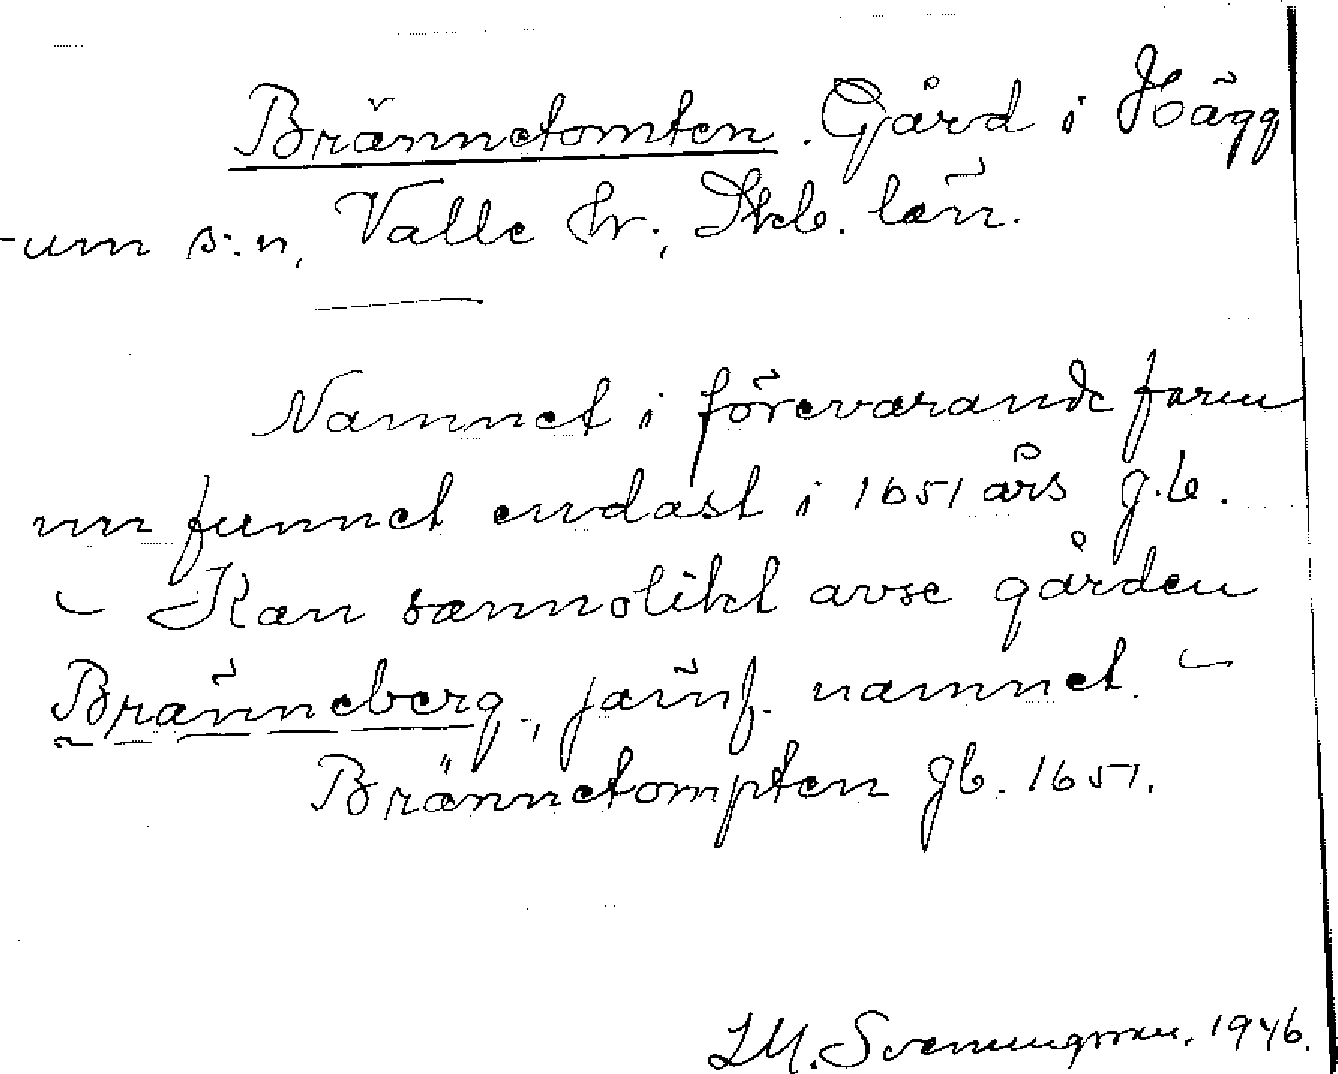 Brännetomten. Gård i Hägg
-um s:n, Valle hr., Skb. län.
Namnet i förevarande form
nu funnet endast i 1651 års g.b.
- Kan sannolikt avse gården
Bränneberg., jämf. namnet. -
Brännetompten gb. 1651.
Svenungsson. 1946.